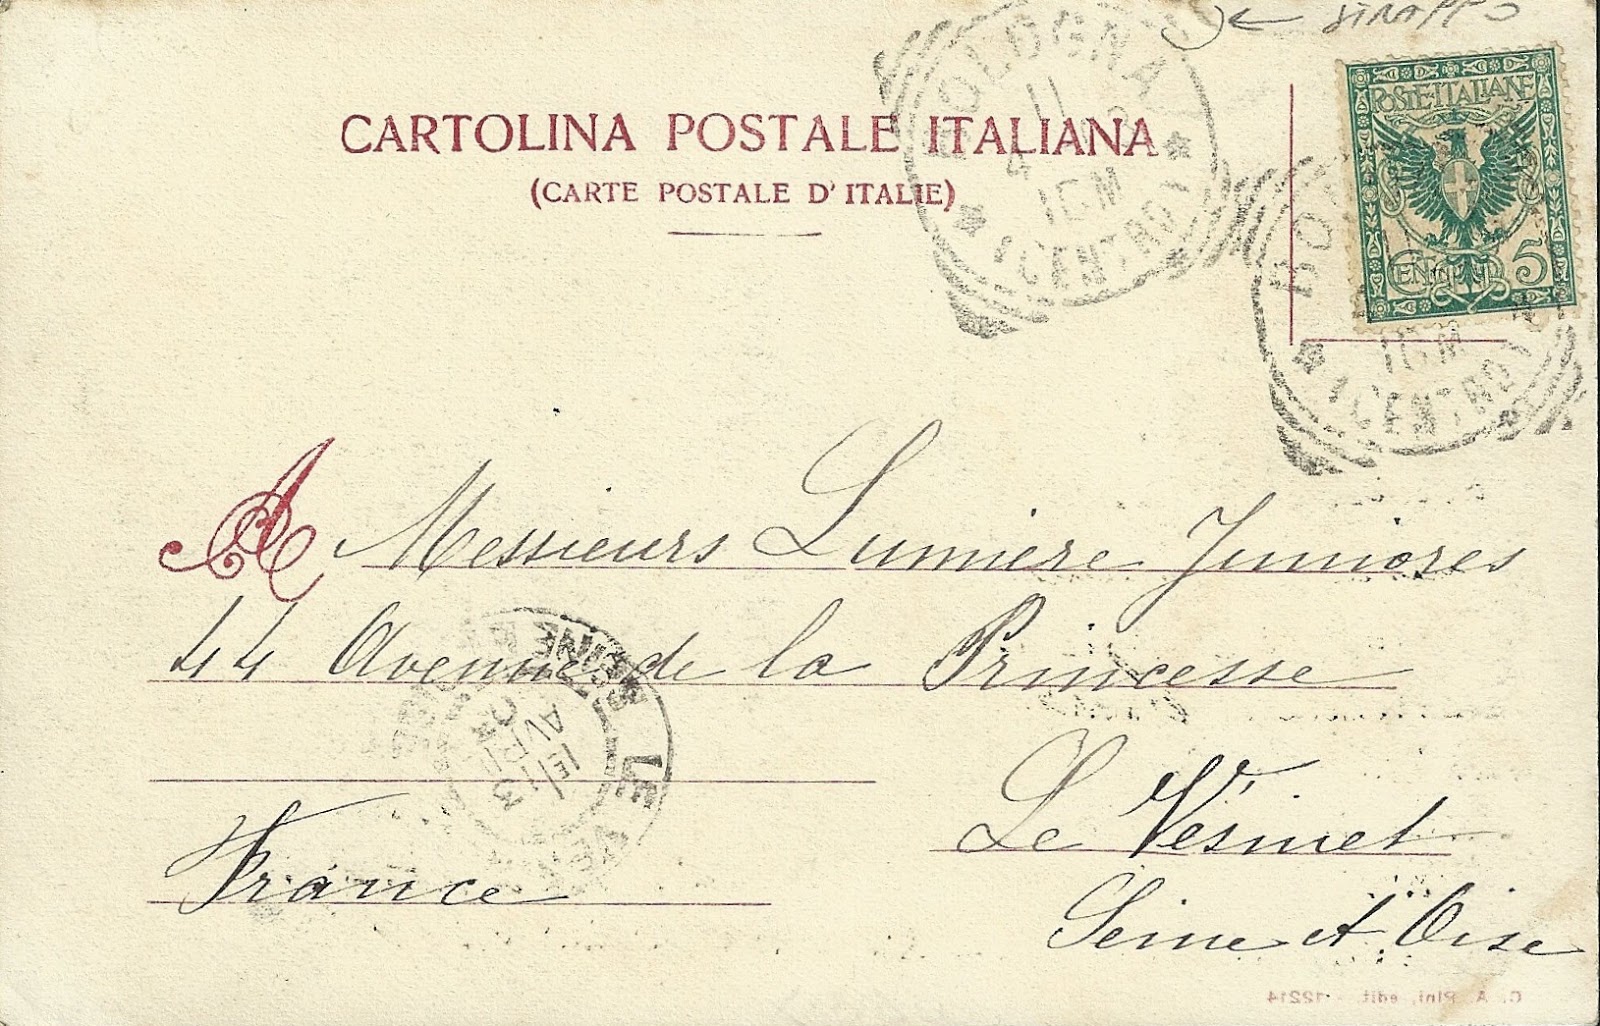 STRAPPO
CARTOLINA POSTALE ITALIANA
(CARTE POSTALE D'ITALIE)
BOLOGNA
11
4
16 M
1 (CENTRO)
POSTE ITALIANE
CENTESIMI 5
BO
16 M
1 (CENTRO)
A Messieurs Lumière Juniores
44 Avenue de la Princesse
Le Vésinet
France
Seine et Oise
LE
13
AVRIL
C. A. Pini, edit. - 12214